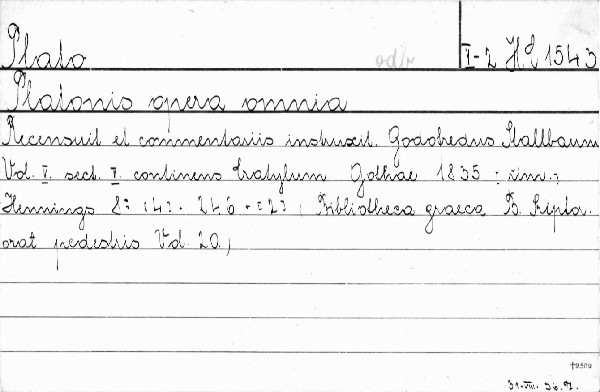 Plato odb I-2 Hl 1543
Platonis opera omnia
Recensuit et commentariis instruxit Godofredus Stallbaum
Vol. V. sect. II. continens Cratylum Gothae 1835 : sum.:
Hennings 8° (4) - 246 - (2) ( Bibliotheca graeca B. Script.
orat pedestris Vol. 20,)
31.VIII. 56.